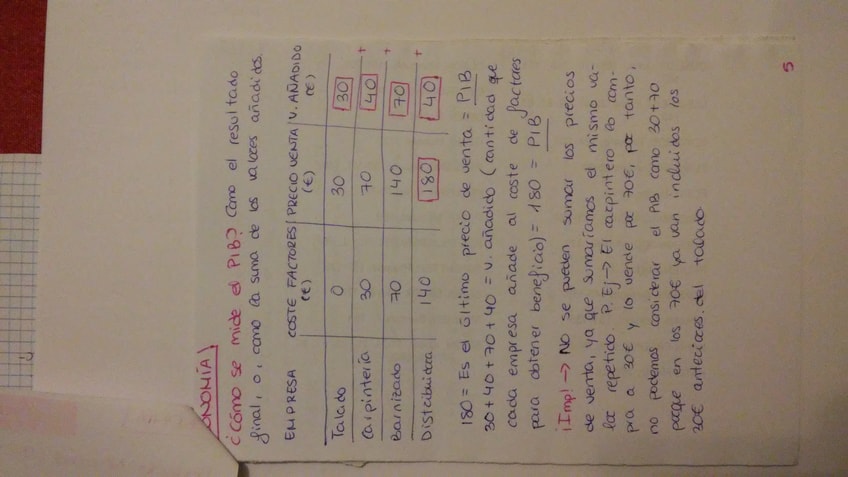 ONOMÍA)
¿Cómo se mide el PIB? Como el resultado
final, o, como la suma de los valores añadidos.
EMPRESA | COSTE FACTORES (€) | PRECIO VENTA (€) | V. AÑADIDO (€)
Talado 0 30 30
Carpintería 30 70 40 +
Barnizado 70 140 70 +
Distribuidora 140 180 40 +
180 = Es el último precio de venta = PIB
30+40+70+40 = v. añadido (cantidad que
cada empresa añade al coste de factores
para obtener beneficio) = 180 = PIB
¡Imp! → No se pueden sumar los precios
de venta, ya que sumaríamos el mismo va-
lor repetido. P. Ej → El carpintero lo com-
pra a 30€ y lo vende por 70€, por tanto,
no podemos considerar el PIB como 30+70
porque en los 70€ ya van incluidos los
30€ anteriores del talado
5